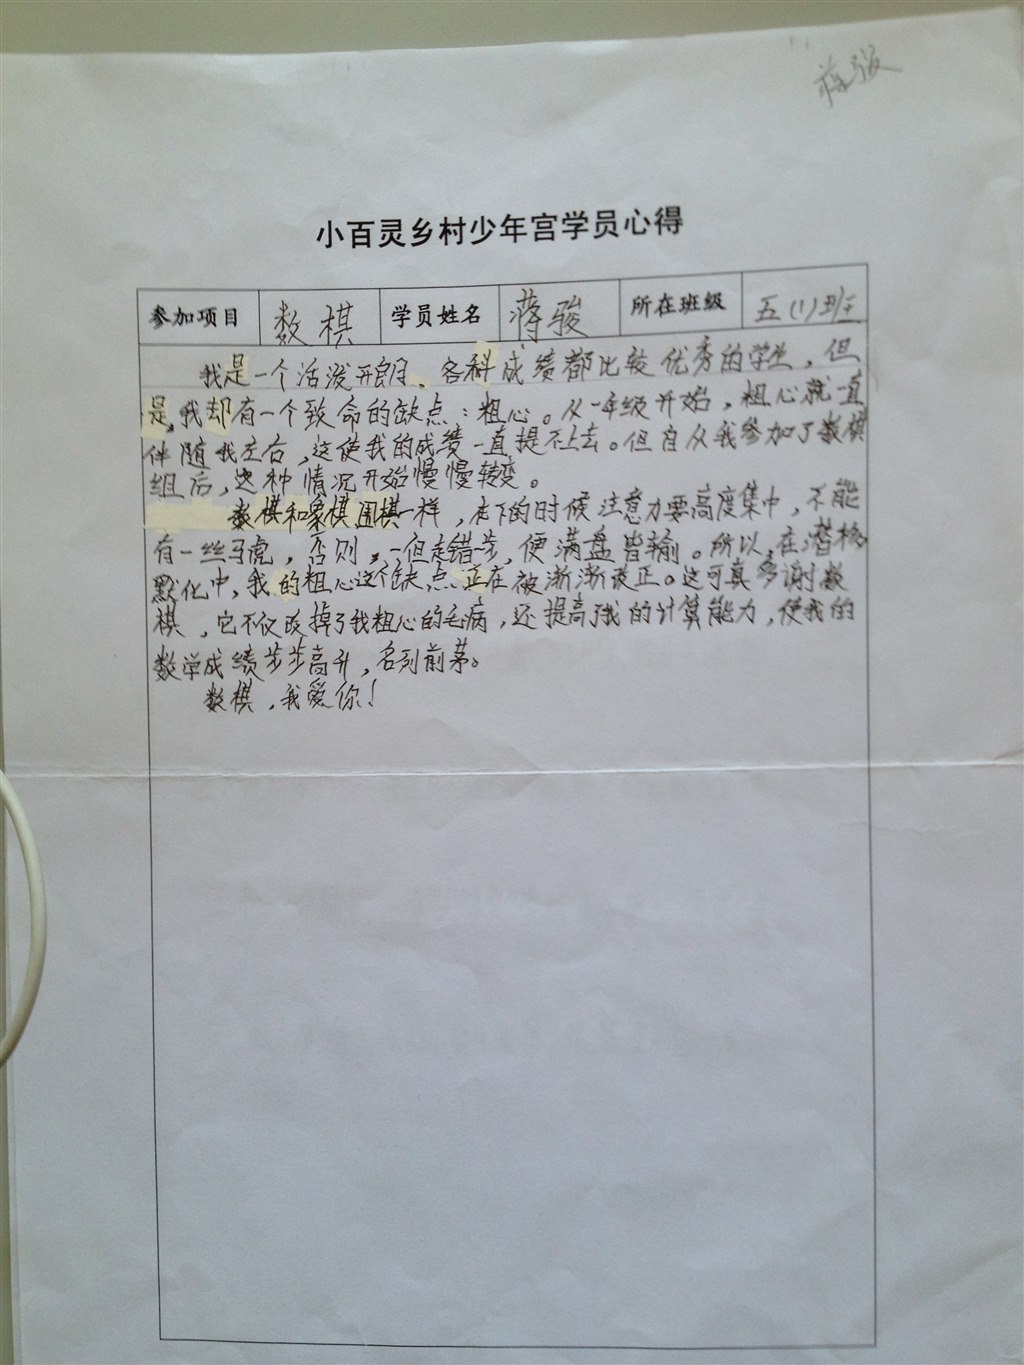 蒋骏
小百灵乡村少年宫学员心得
参加项目 数棋 学员姓名 蒋骏 所在班级 五(1)班
我是一个活泼开朗、各科成绩都比较优秀的学生，但
是，我却有一个致命的缺点：粗心。从一年级开始，粗心就一直
伴随我左右，这使我的成绩一直提不上去。但自从我参加了数棋
组后，这种情况开始慢慢转变。
数棋和象棋围棋一样，在下的时候注意力要高度集中，不能
有一丝马虎，否则，一但走错步，便满盘皆输。所以，在潜移
默化中，我的粗心这个缺点正在被渐渐改正。这可真多谢数
棋，它不仅改掉了我粗心的毛病，还提高了我的计算能力，使我的
数学成绩步步高升，名列前茅。
数棋，我爱你！